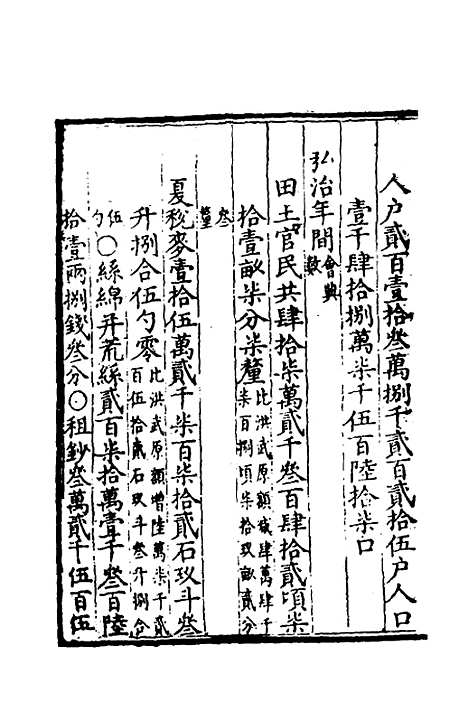 人户貳百壹拾叁萬捌千貳百貳拾伍户人口
壹千肆拾捌萬柒千伍百陸拾柒口
弘治年間會典數
田土官民共肆拾柒萬貳千叁百肆拾貳頃柒
拾壹畝柒分柒釐比洪武原額減肆萬肆千柒百捌頃柒拾玖畝貳分
叁釐
夏稅麥壹拾伍萬貳千柒百柒拾貳石玖斗叁
升捌合伍勺零比洪武原額增陸萬柒千貳百伍拾貳石玖斗叁升捌合
伍勺〇絲綿并荒絲貳百柒拾萬壹千叁百陸
拾壹兩捌錢叁分〇租鈔叁萬貳千伍百伍